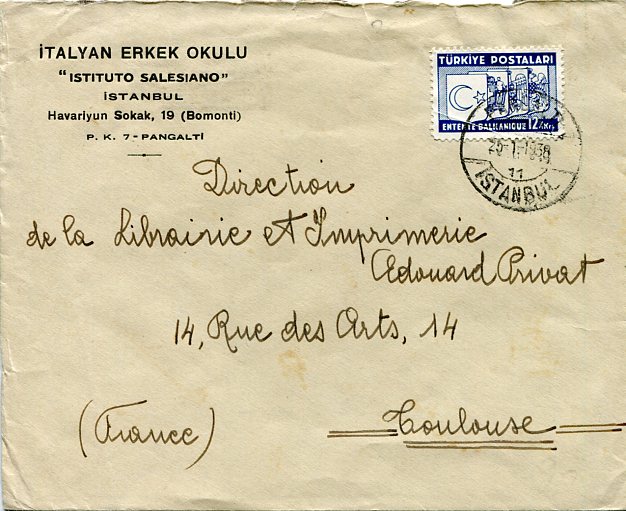 İTALYAN ERKEK OKULU
"ISTITUTO SALESIANO"
İSTANBUL
Havariyun Sokak, 19 (Bomonti)
P. K. 7 - PANGALTİ
TÜRKİYE POSTALARI
ENTENTE BALKANIQUE 12½ Krş.
11
İSTANBUL
Direction
de la Librairie et Imprimerie
Edouard Privat
14, Rue des Arts, 14
(France) Toulouse